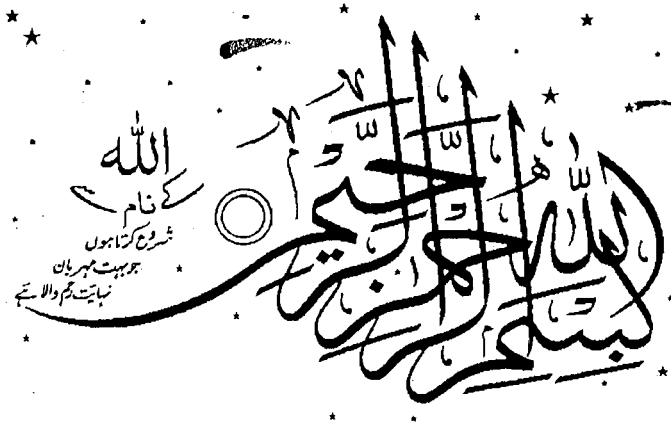 بسم الله الرحمن الرحيم
الله
کے نام سے
شروع کرتا ہوں
جو بہت مہربان
نہایت رحم والا ہے